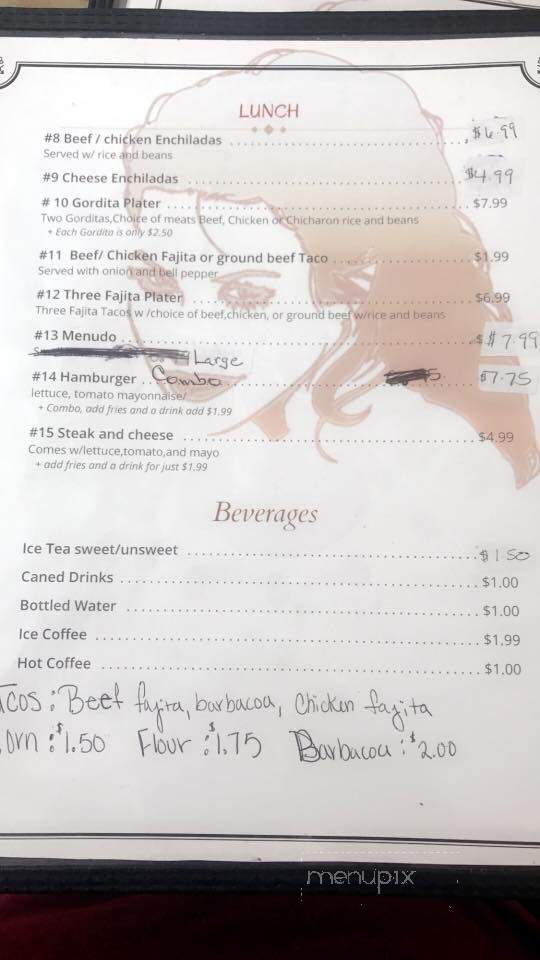 LUNCH
#8 Beef / chicken Enchiladas $6.99
Served w/ rice and beans
#9 Cheese Enchiladas $4.99
# 10 Gordita Plater $7.99
Two Gorditas,Choice of meats Beef, Chicken or Chicharon rice and beans
+ Each Gordita is only $2.50
#11 Beef/ Chicken Fajita or ground beef Taco $1.99
Served with onion and bell pepper
#12 Three Fajita Plater $6.99
Three Fajita Tacos w /choice of beef,chicken, or ground beef w/rice and beans
#13 Menudo $ $7.99
Large
#14 Hamburger Combo $7.75
lettuce, tomato mayonnaise/
+ Combo, add fries and a drink add $1.99
#15 Steak and cheese $4.99
Comes w/lettuce,tomato,and mayo
+ add fries and a drink for just $1.99
Beverages
Ice Tea sweet/unsweet $1.50
Caned Drinks $1.00
Bottled Water $1.00
Ice Coffee $1.99
Hot Coffee $1.00
acos: Beef fajita, barbacoa, Chicken fajita
orn: $1.50 Flour: $1.75 Barbacoa: $2.00
menupix